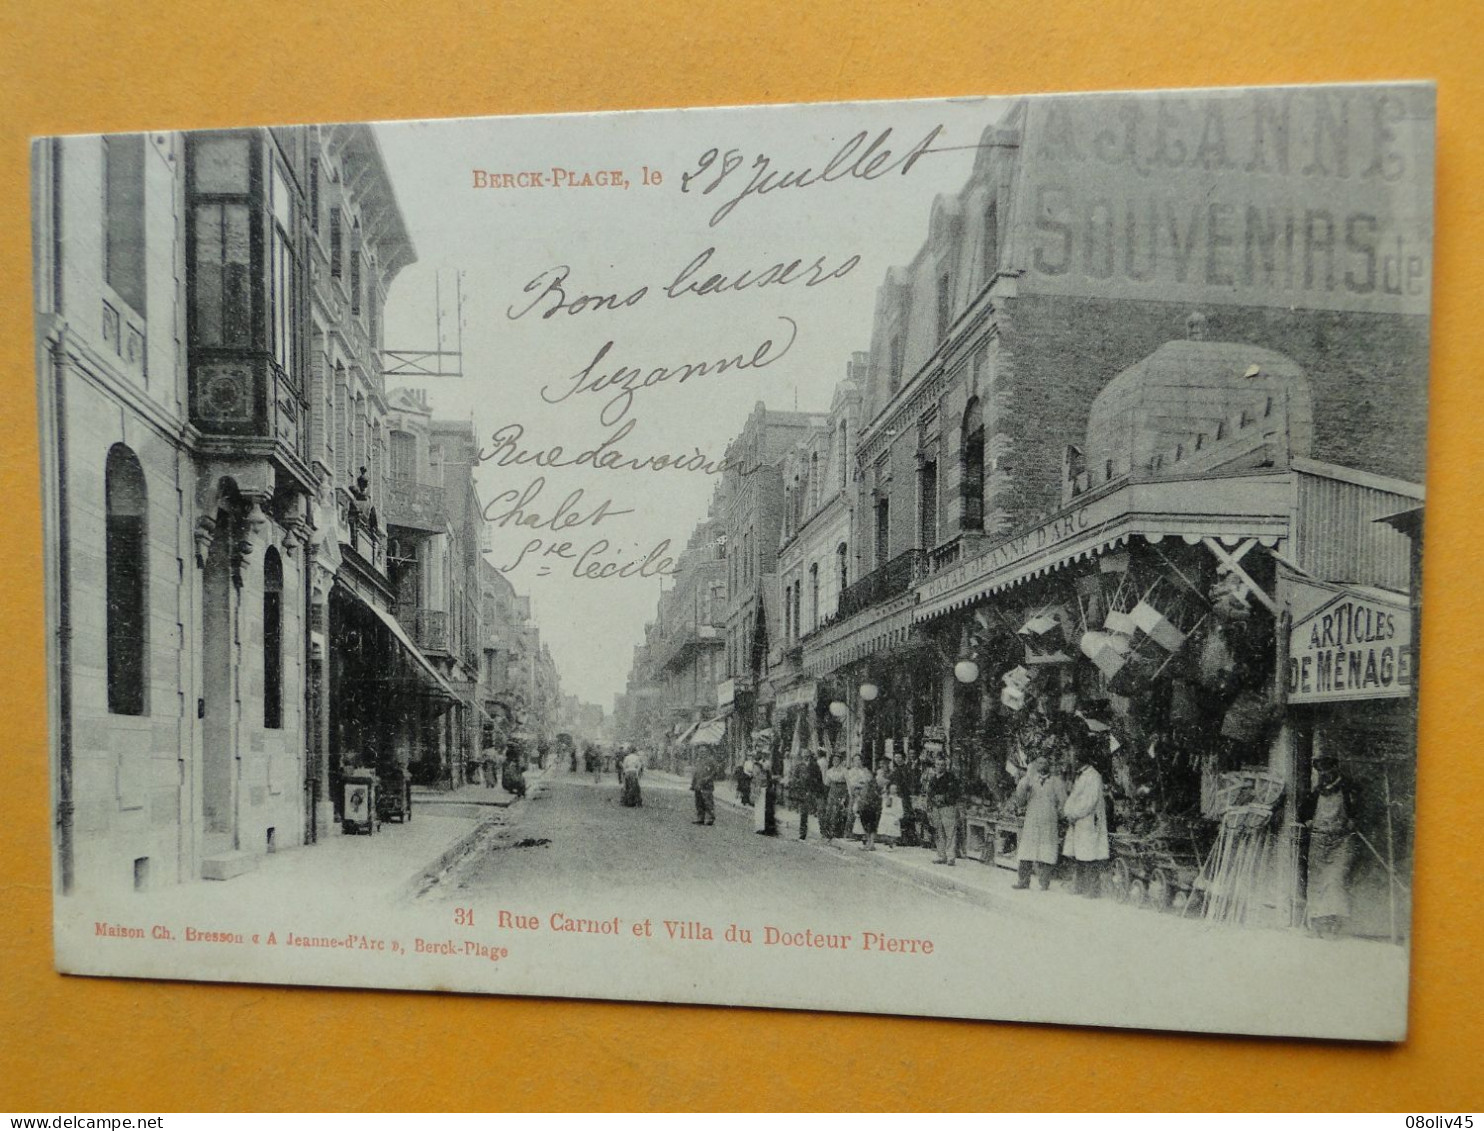 BERCK-PLAGE, le 28 Juillet
Bons baisers
Suzanne
Rue Lavoisier
Chalet
Ste Cécile
A JEANNE
SOUVENIRS de
BAZAR JEANNE D'ARC
ARTICLES
DE MÉNAGE
31 Rue Carnot et Villa du Docteur Pierre
Maison Ch. Bresson « A Jeanne-d'Arc », Berck-Plage
08oliv45